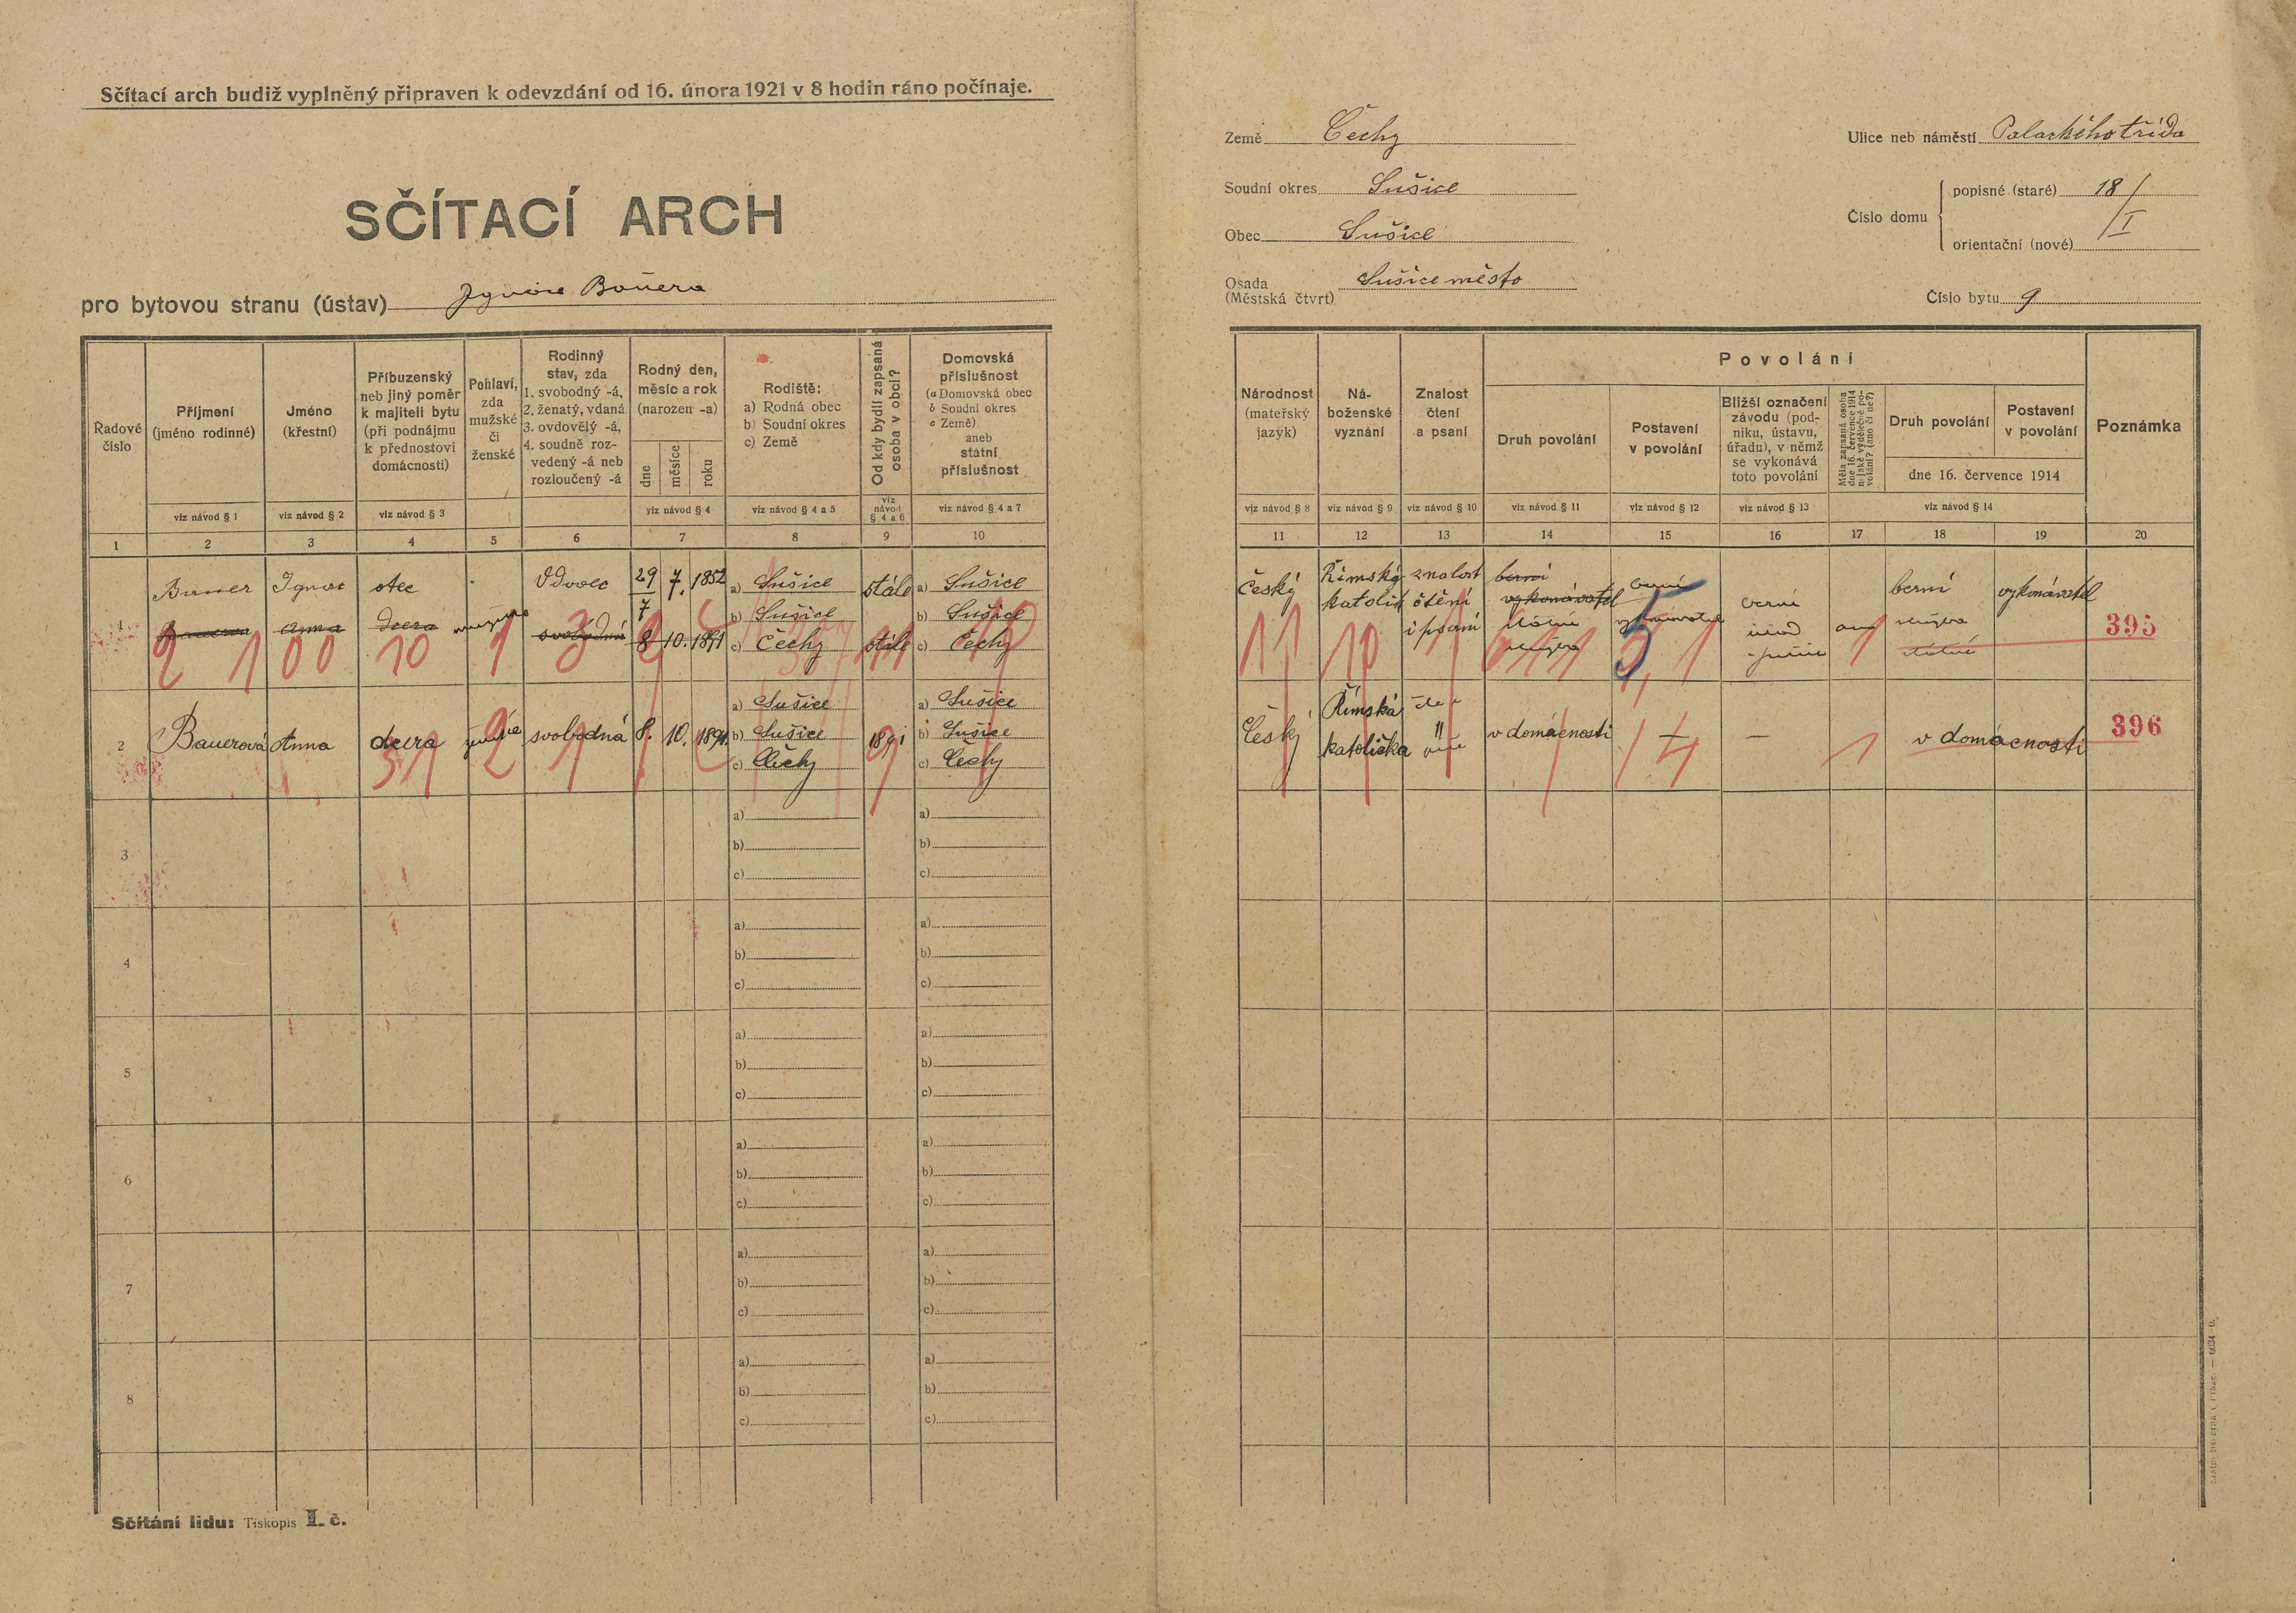 Sčítací arch budiž vyplněný připraven k odevzdání od 16. února 1921 v 8 hodin ráno počínaje.
SČÍTACÍ ARCH
pro bytovou stranu (ústav) Ignáce Bauera
Země Čechy
Soudní okres Sušice
Obec Sušice
Osada (Městská čtvrt) Sušice město
Ulice neb náměstí Palackého třída
Číslo domu
popisné (staré) 18/I
orientační (nové)
Číslo bytu 9
Řadové číslo
Příjmení (jméno rodinné)
viz návod § 1
Jméno (křestní)
viz návod § 2
Příbuzenský neb jiný poměr k majiteli bytu (při podnájmu k přednostovi domácnosti)
viz návod § 3
Pohlaví, zda mužské či ženské
Rodinný stav, zda
1. svobodný -á,
2. ženatý, vdaná
3. ovdovělý -á,
4. soudně rozvedený -á neb rozloučený -á
Rodný den, měsíc a rok (narozen -a)
dne
měsíce
roku
viz návod § 4
Rodiště:
a) Rodná obec
b) Soudní okres
c) Země
viz návod § 4 a 5
Od kdy bydlí zapsaná osoba v obci?
viz návod § 4 a 6
Domovská příslušnost
(a Domovská obec
b Soudní okres
c Země)
aneb státní příslušnost
viz návod § 4 a 7
1 2 3 4 5 6 7 8 9 10
Národnost (mateřský jazyk)
viz návod § 8
Náboženské vyznání
viz návod § 9
Znalost čtení a psaní
viz návod § 10
Povolání
Druh povolání
viz návod § 11
Postavení v povolání
viz návod § 12
Bližší označení závodu (podniku, ústavu, úřadu), v němž se vykonává toto povolání
viz návod § 13
Měla zapsaná osoba dne 16. července 1914 nějaké výdělečné povolání? (ano či ne?)
Druh povolání
Postavení v povolání
dne 16. července 1914
viz návod § 14
Poznámka
11 12 13 14 15 16 17 18 19 20
1 Bauer Ignac otec vdovec 29 7. 1852
7
Anna dcera svobodná 8 10. 1891
a) Sušice stále a) Sušice
b) Sušice b) Sušice
c) Čechy stále c) Čechy
2 1 00 10 1 3
Český Římský katolík znalost čtění i psaní
berní vykonavatel
berní
berní vykonávatel
5
395
2 Bauerová Anna dcera svobodná 8. 10. 1891.
a) Sušice a) Sušice
b) Sušice 1891 b) Sušice
c) Čechy c) Čechy
31 2 1
Český Římská katolička " v domácnosti — — v domácnosti
396
3 a) a)
b) b)
c) c)
4 a) a)
b) b)
c) c)
5 a) a)
b) b)
c) c)
6 a) a)
b) b)
c) c)
7 a) a)
b) b)
c) c)
8 a) a)
b) b)
c) c)
Sčítání lidu: Tiskopis I. č.